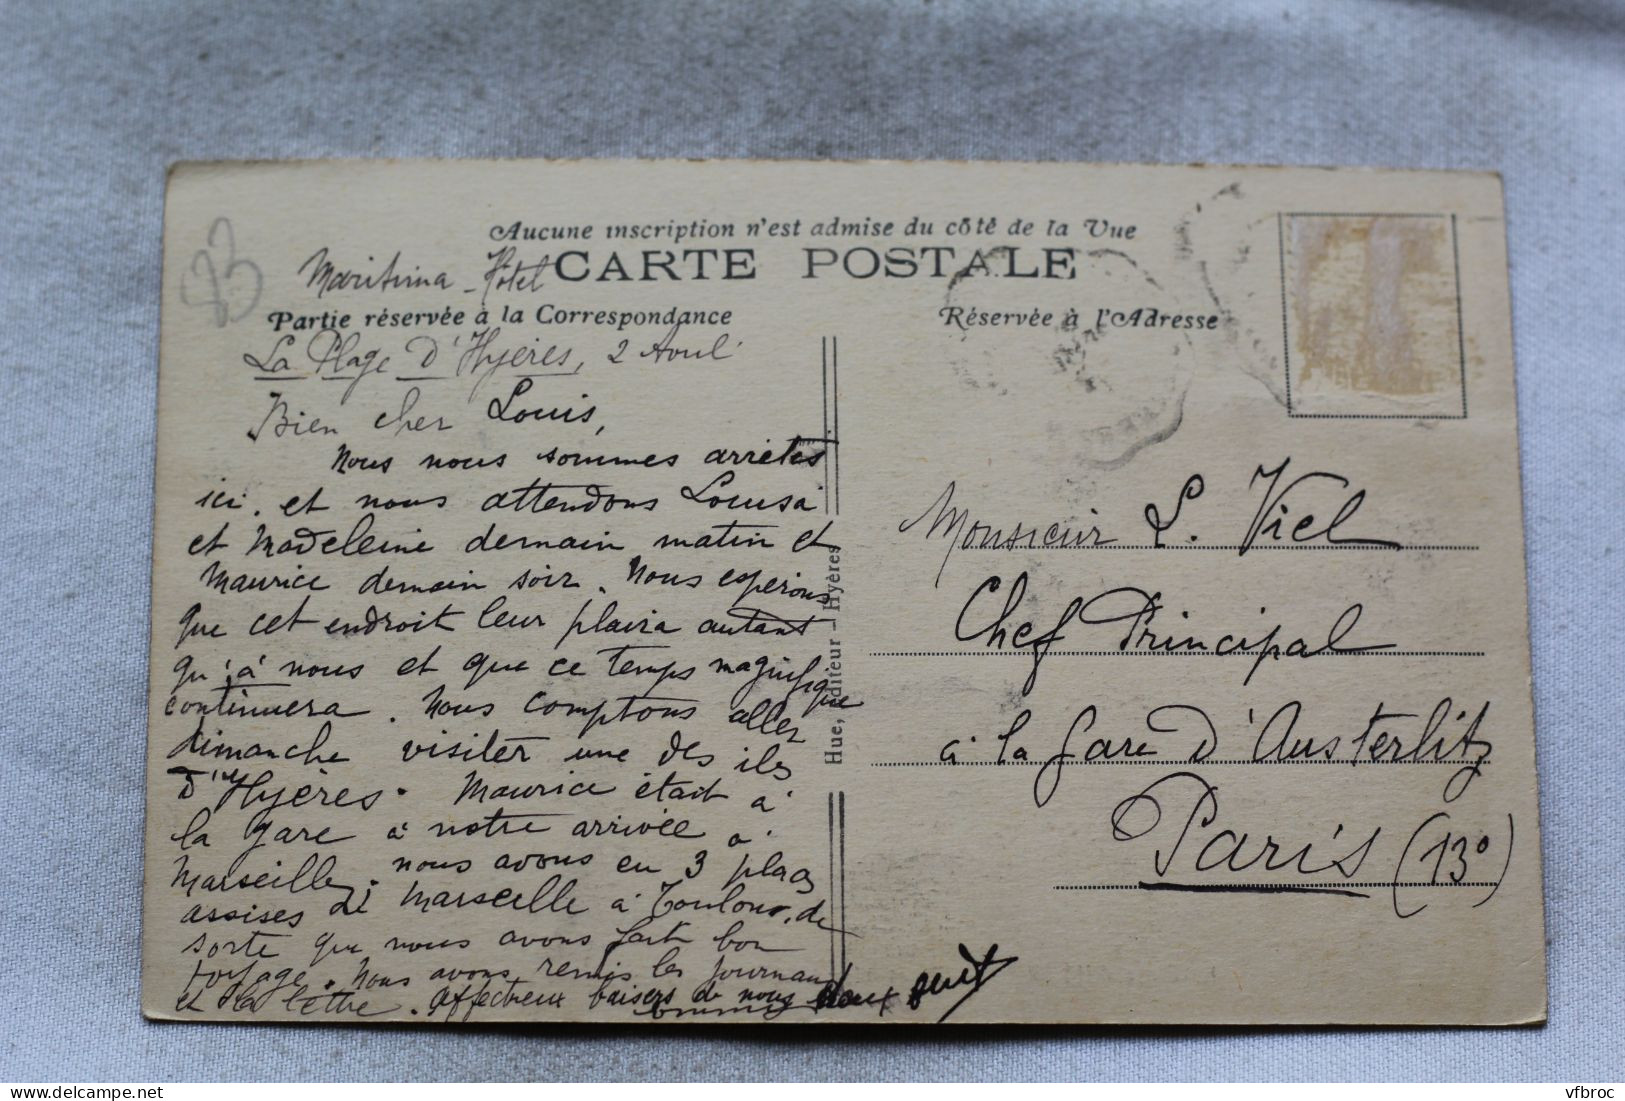 83
Aucune inscription n'est admise du côté de la Vue
Maritima - Hôtel
CARTE POSTALE
Partie réservée à la Correspondance
Réservée à l'Adresse
La Plage d'Hyères, 2 Avril
Bien cher Louis,
Nous nous sommes arrêtés
ici, et nous attendons Louisa
et Madeleine demain matin et
Maurice demain soir. Nous espérons
que cet endroit leur plaira autant
qu'à nous et que ce temps magnifique
continuera. Nous comptons aller
dimanche visiter une des iles
d'Hyères. Maurice était à
la gare à notre arrivée à
Marseille, nous avons eu 3 places
assises de Marseille à Toulon, de
sorte que nous avons fait bon
voyage. Nous avons remis les journaux
et la lettre. Affectueux baisers de nous
Hue, Editeur - Hyères
Monsieur L. Viel
Chef Principal
à la gare d'Austerlitz
Paris (13°)
vfbroc